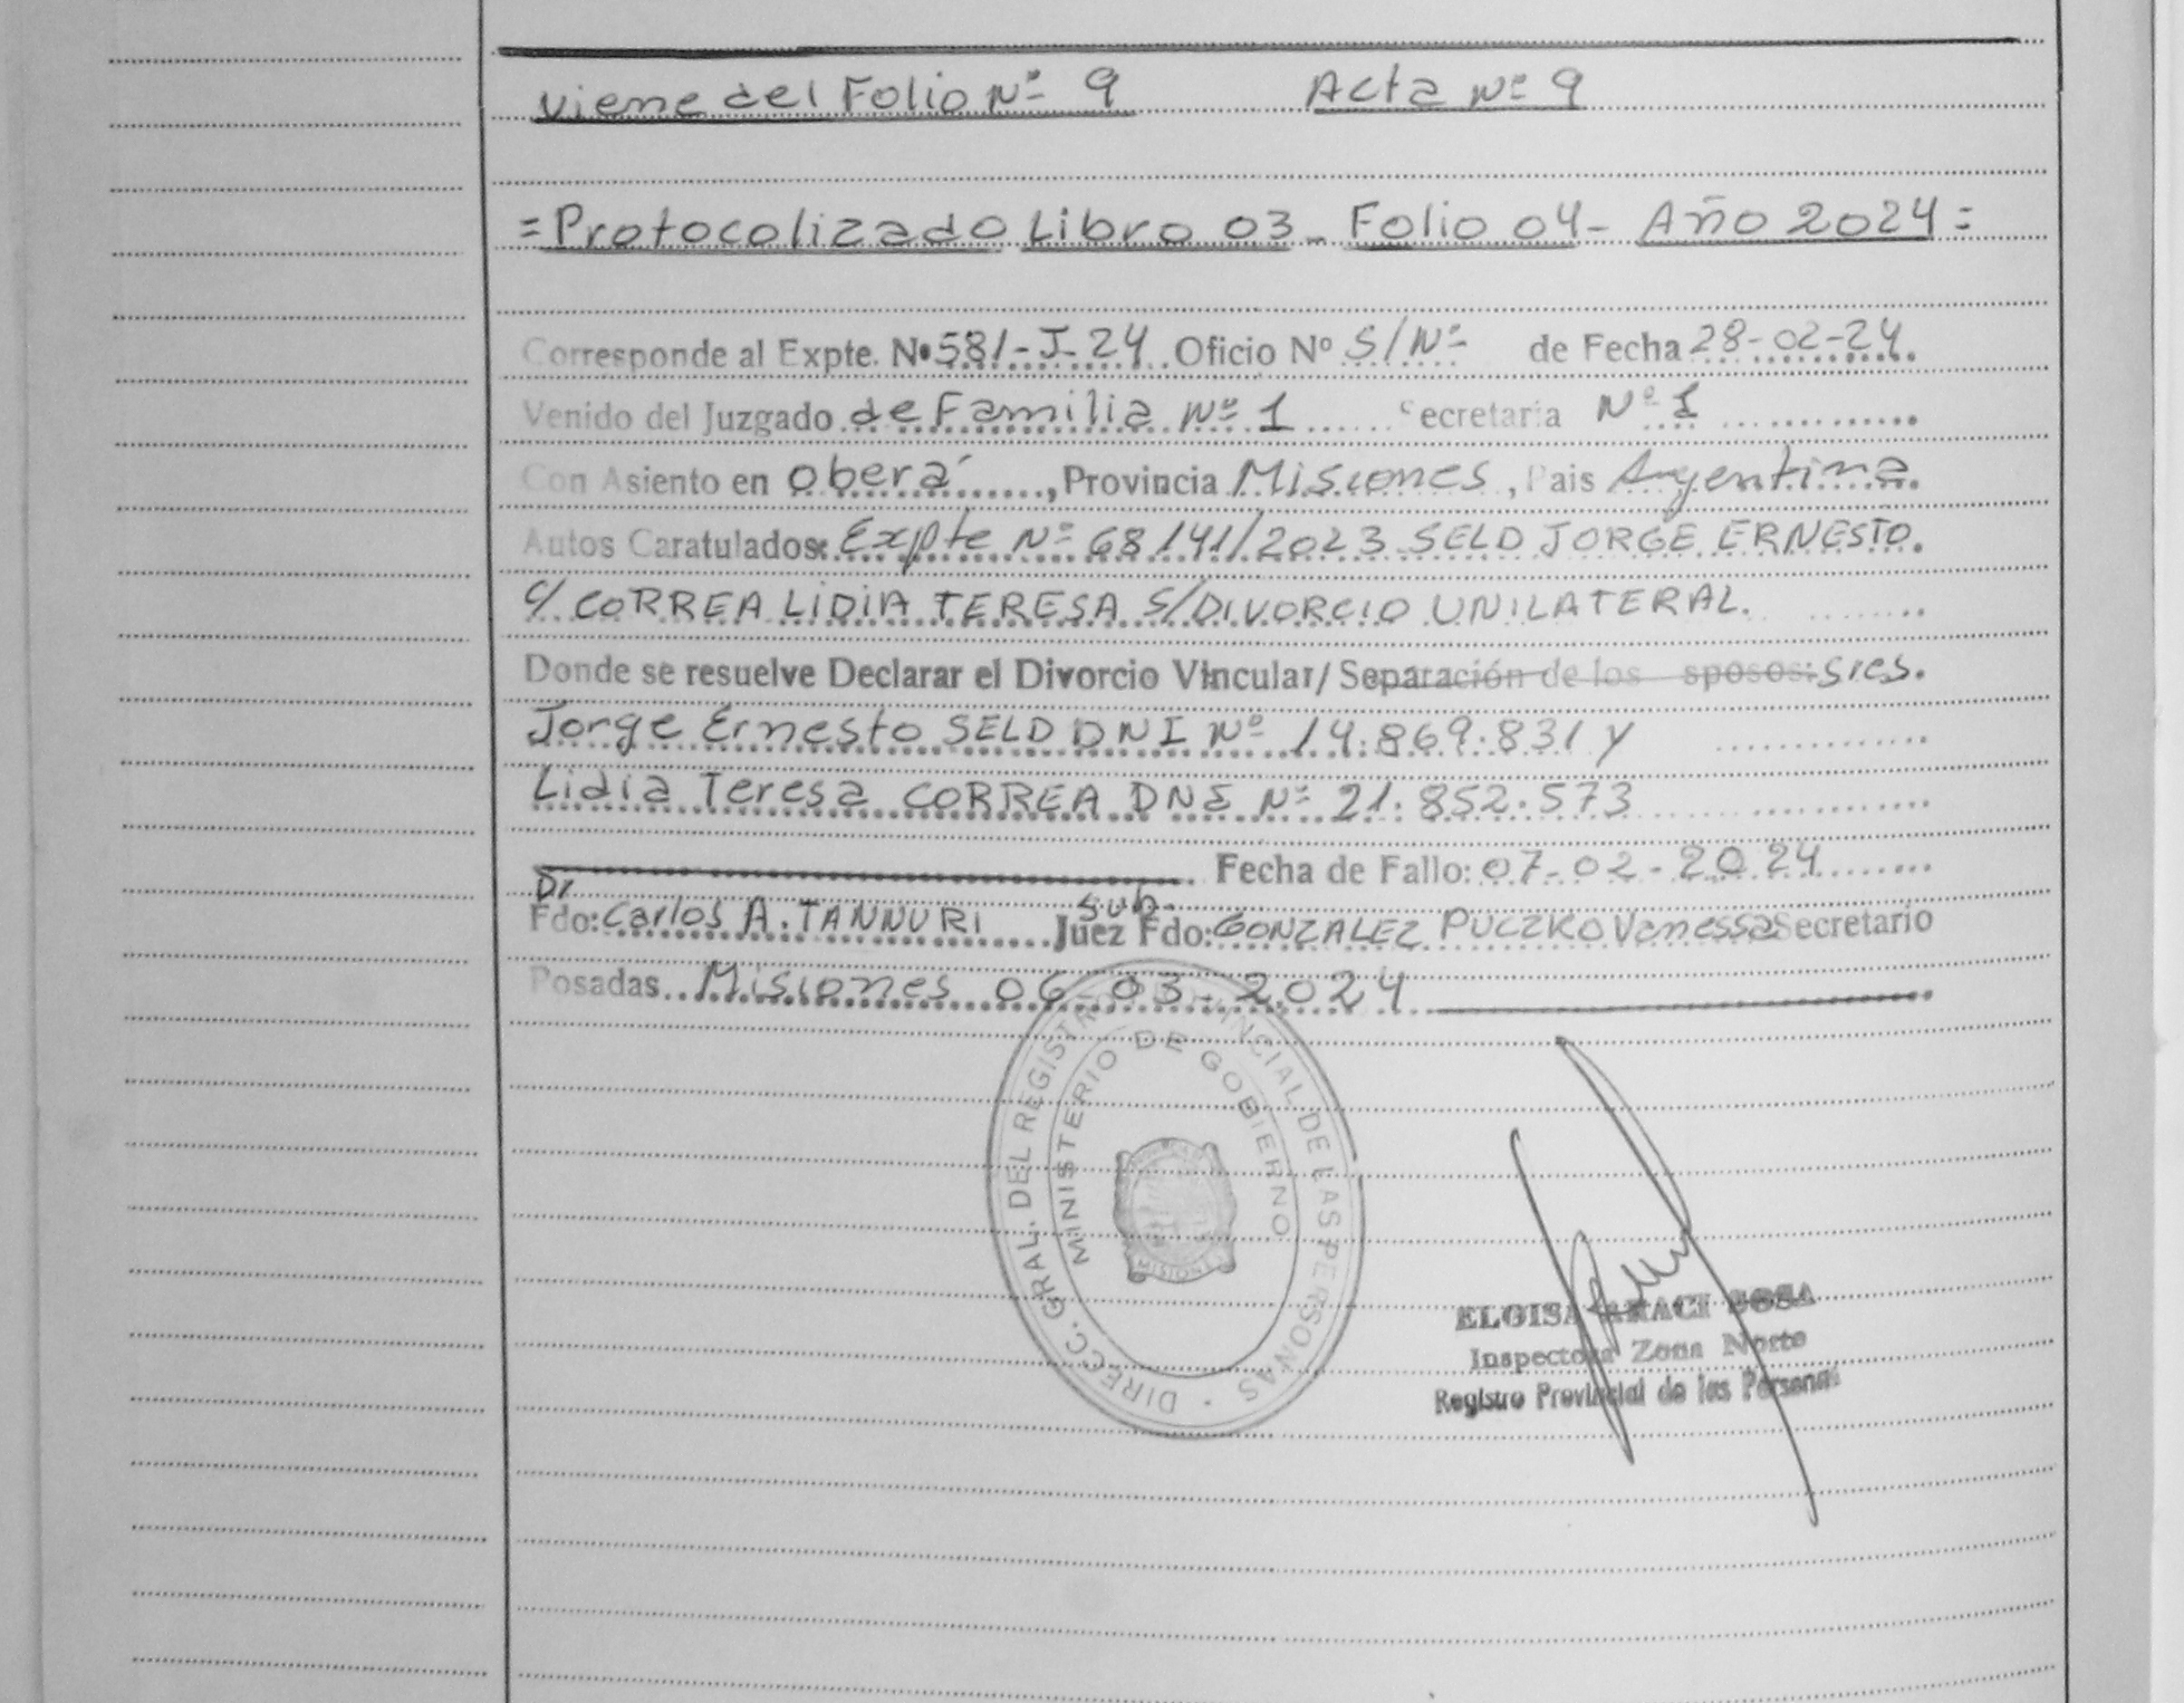 viene del Folio Nº 9 Acta Nº 9
=Protocolizado Libro 03_ Folio 04- Año 2024=
Corresponde al Expte. Nº 581-J-24 Oficio Nº S/Nº de Fecha 28-02-24.
Venido del Juzgado de Familia Nº 1 ecretaria Nº 1
Con Asiento en Oberá, Provincia Misiones, Pais Argentina.
Autos Caratulados: Expte Nº 68141/2023 SELD JORGE ERNESTO.
C/ CORREA LIDIA TERESA S/DIVORCIO UNILATERAL.
Donde se resuelve Declarar el Divorcio Vincular/ Separación de los sposos: sres.
Jorge Ernesto SELD DNI Nº 14.869.831 y
Lidia Teresa CORREA DNI Nº 21.852.573
Fecha de Fallo: 07-02-2024
Dr. sub.
Fdo: Carlos A. TANNURI Juez Fdo: GONZALEZ PUCZKO Vanessa Secretario
Posadas. Misiones 06-03-2024
DIRECC. GRAL. DEL REGISTRO PROVINCIAL DE LAS PERSONAS
MINISTERIO DE GOBIERNO
MISIONES
ELOISA ARACI SOSA
Inspectora Zona Norte
Registro Provincial de las Personas